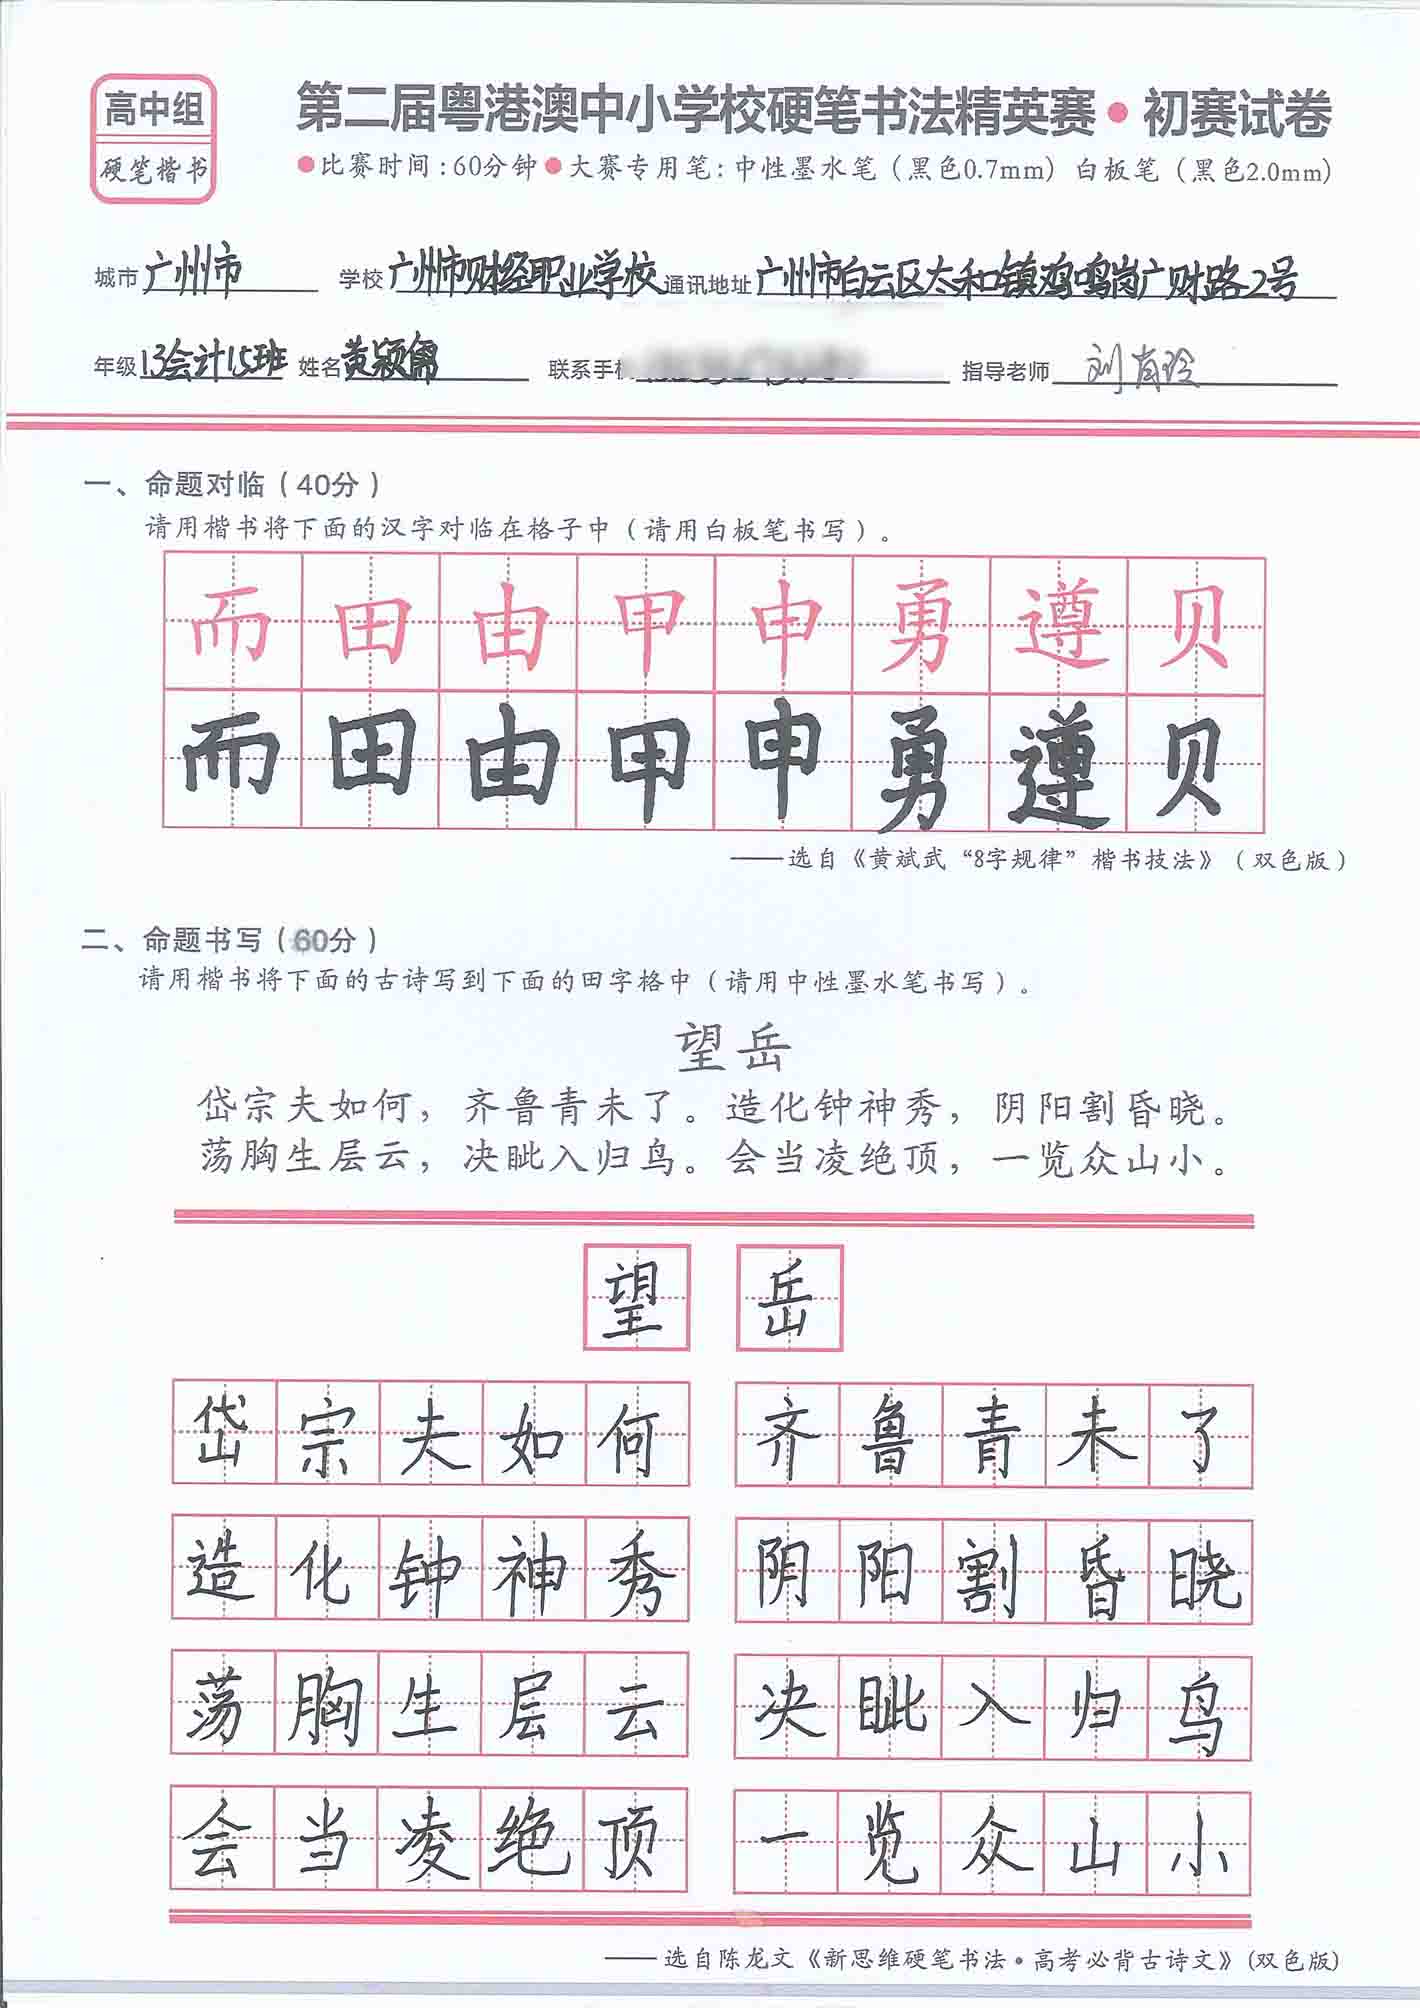 高中组
硬笔楷书
第二届粤港澳中小学校硬笔书法精英赛●初赛试卷
●比赛时间:60分钟●大赛专用笔:中性墨水笔(黑色0.7mm) 白板笔(黑色2.0mm)
城市 广州市 学校 广州市财经职业学校 通讯地址 广州市白云区太和镇鸡鸣岗广财路2号
年级 13会计15班 姓名 黄颖儒 联系手机 指导老师 刘肖玲
一、命题对临(40分)
请用楷书将下面的汉字对临在格子中(请用白板笔书写)。
而田由甲申勇遵贝
而田由甲申勇遵贝
——选自《黄斌武“8字规律”楷书技法》(双色版)
二、命题书写(60分)
请用楷书将下面的古诗写到下面的田字格中(请用中性墨水笔书写)。
望岳
岱宗夫如何,齐鲁青未了。造化钟神秀,阴阳割昏晓。
荡胸生层云,决眦入归鸟。会当凌绝顶,一览众山小。
望岳
岱宗夫如何 齐鲁青未了
造化钟神秀 阴阳割昏晓
荡胸生层云 决眦入归鸟
会当凌绝顶 一览众山小
——选自陈龙文《新思维硬笔书法·高考必背古诗文》(双色版)